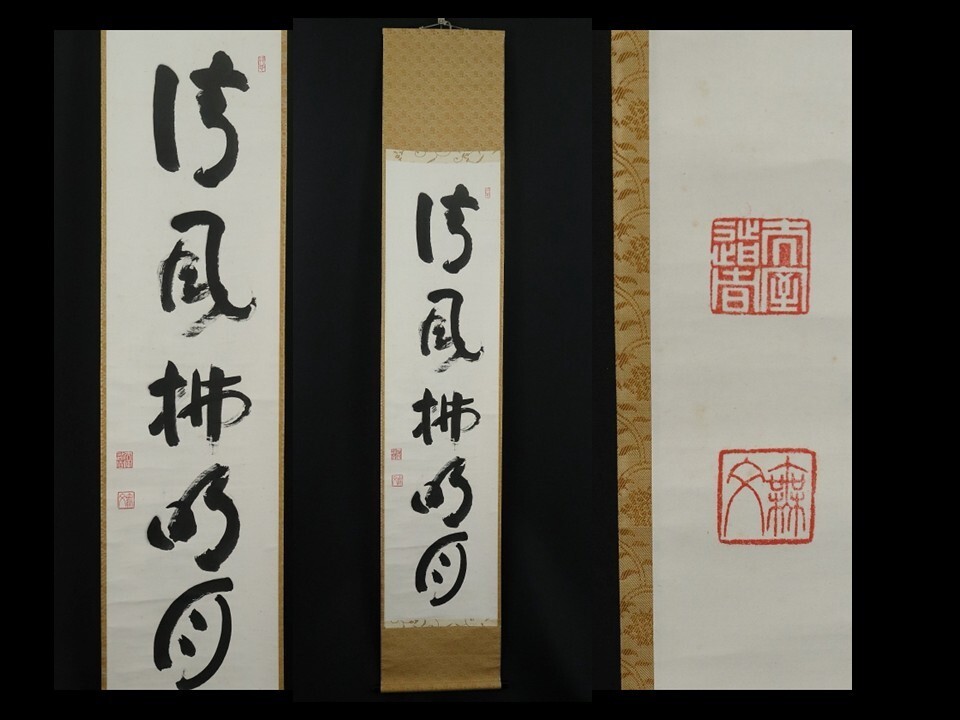 清風拂明月
清風拂明月
無文